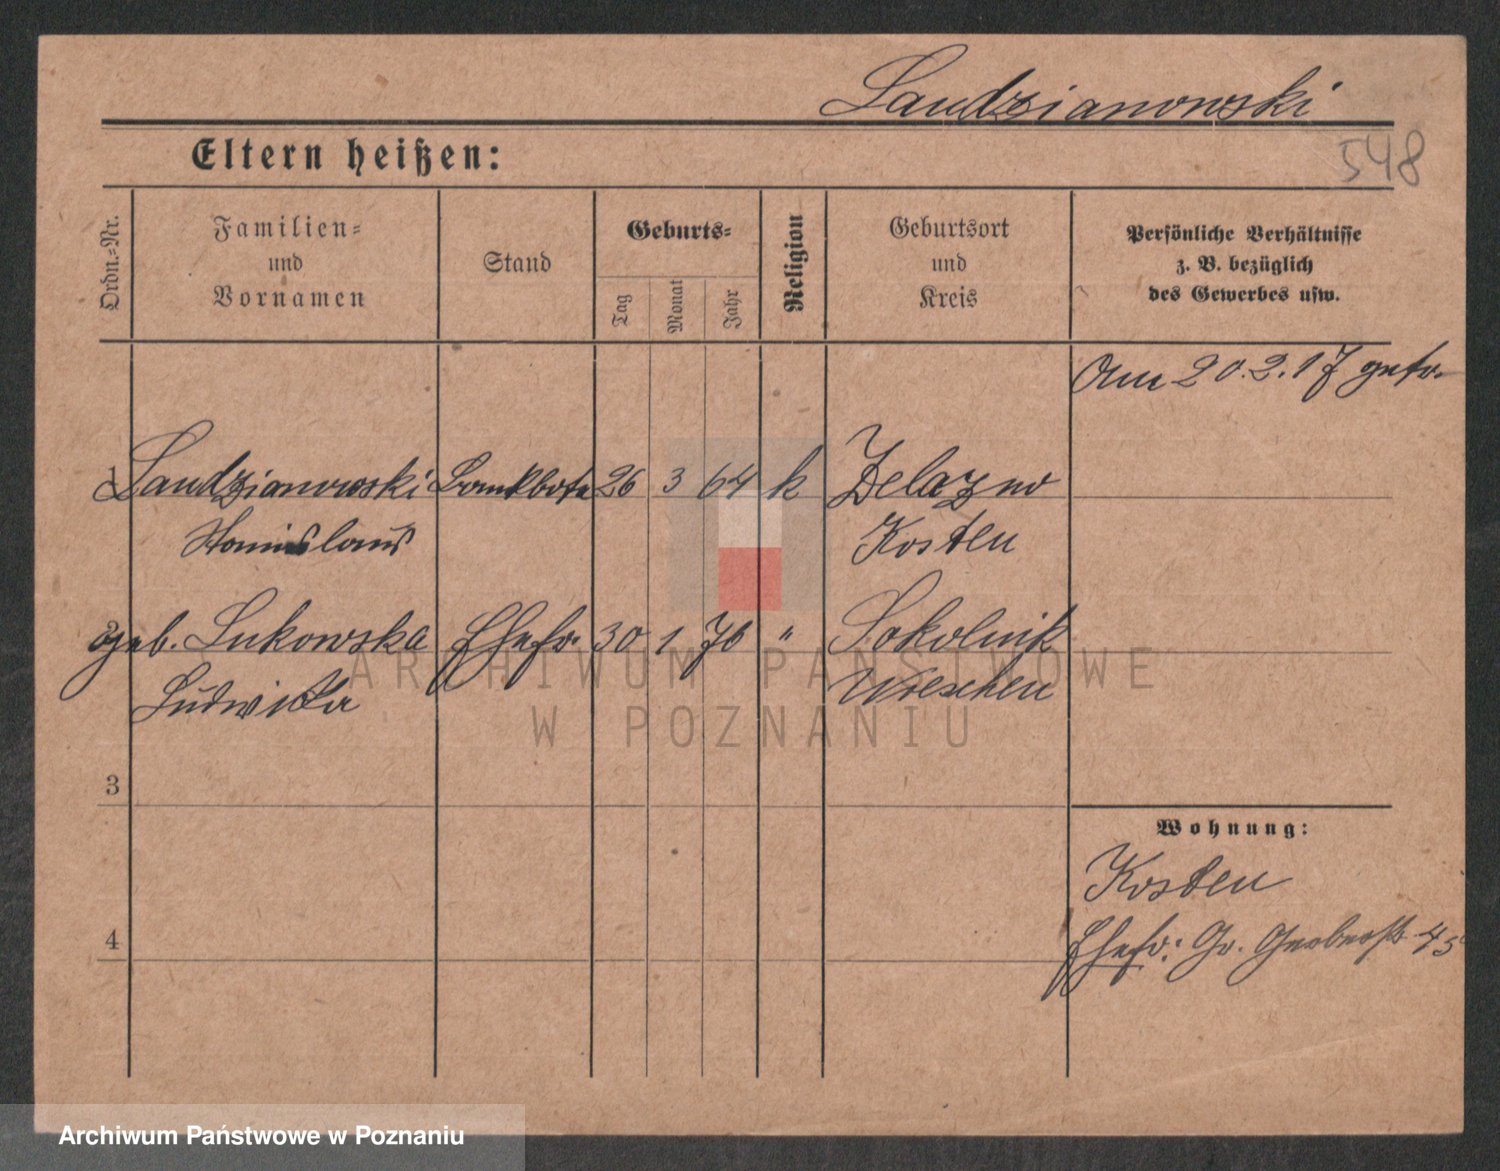 Landzianowski
548
Eltern heißen:
Ordn.-Nr.
Familien-
und
Vornamen
Stand
Geburts-
Tag
Monat
Jahr
Religion
Geburtsort
und
Kreis
Persönliche Verhältnisse
z. B. bezüglich
des Gewerbes usw.
Am 20.2.17 getr.
1 Landzianowski Bankbote 26 3 64 k Zelazno
Stanislaus Kosten
2 geb. Lukowska Ehefr. 30 1 76 " Sokolnik
Ludwika Wreschen
3
4
Wohnung:
Kosten
Ehefr: Gr. Gerberstr 45
ARCHIWUM PAŃSTWOWE
W POZNANIU
Archiwum Państwowe w Poznaniu